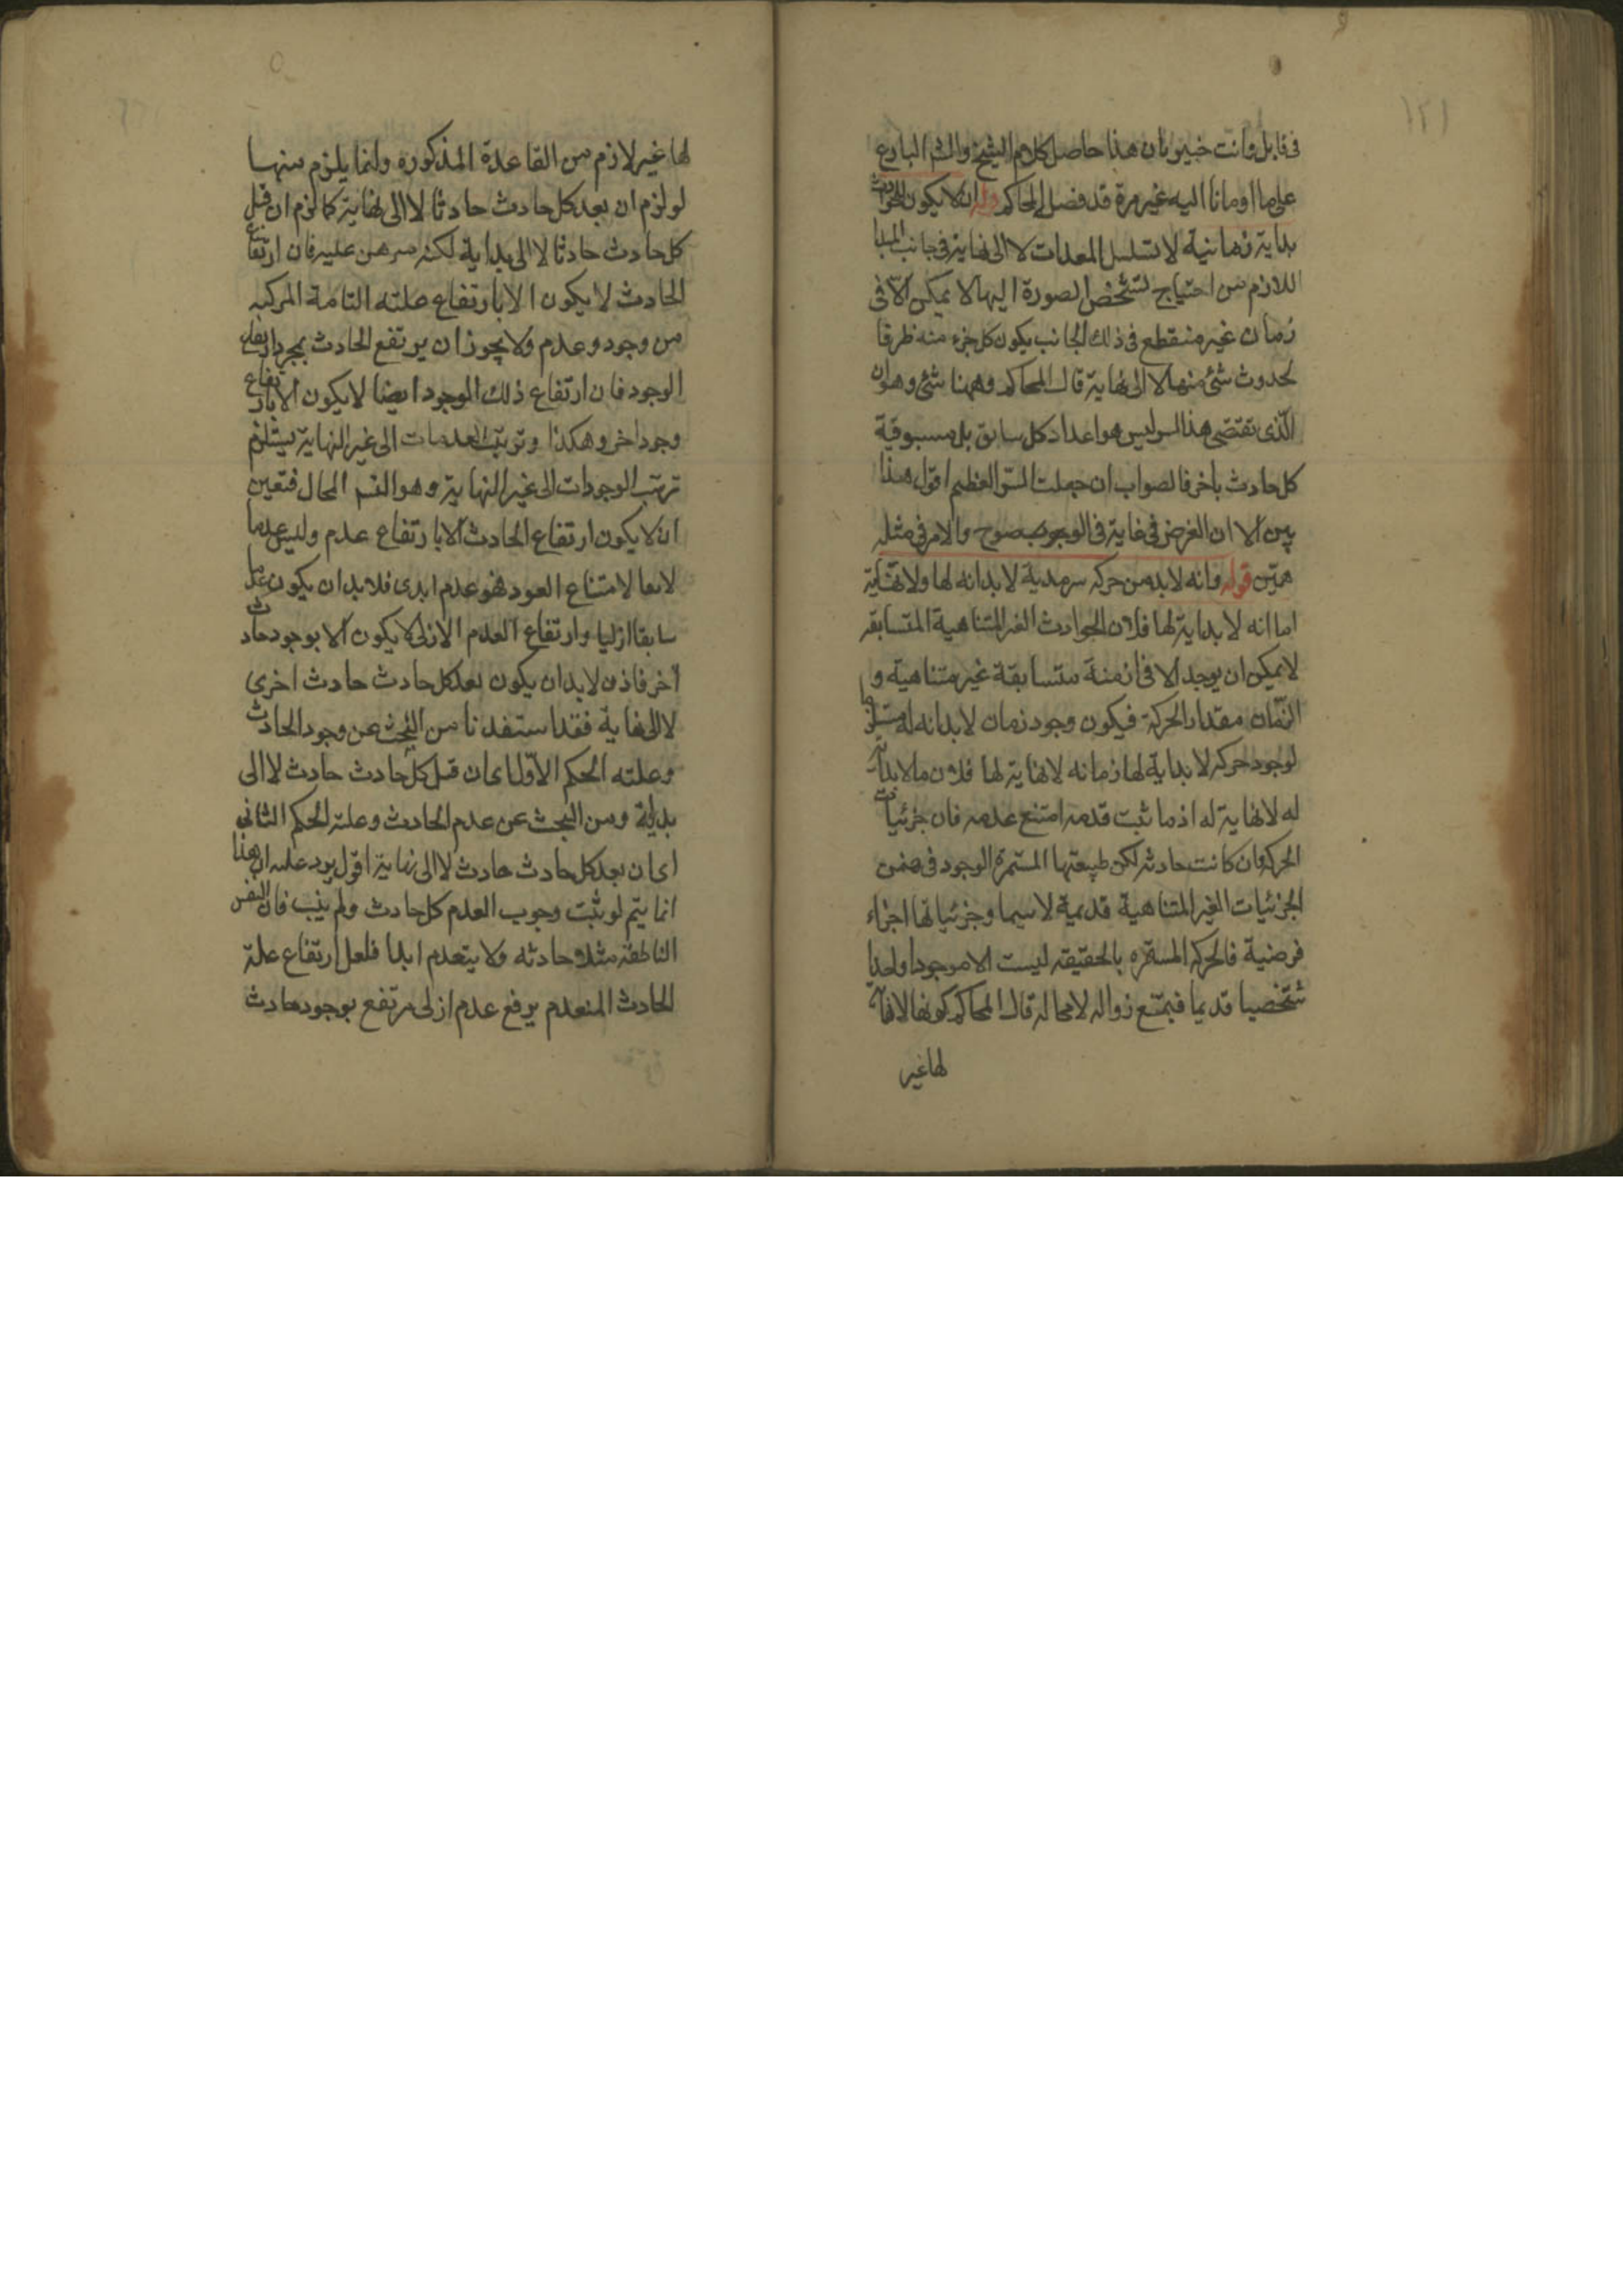 ١٢١
فى قابل وانت خبير بان هذا حاصل كلام الشيخ والشم البارع
على ما اومانا اليه غير مرة قد فضل المحاكم وله ان لا يكون للحوادث
بداية زمانية لا تسلسل المعدات لا الى نهاية فى جانب المبدا
اللازم من احتياج تشخص الصورة اليها لا يمكن الا فى
زمان غير منقطع فى ذلك الجانب يكون كل جزء منه ظرفا
لحدوث شئ منها لا الى نهاية قال المحاكم وههنا شئ وهو ان
الذى تقتضى هذا السر ليس هو اعداد كل سابق بل مسبوقية
كل حادث باخر فالصواب ان جعلت السر العظيم اقول هذا
بين الا ان الغرض فى غاية فى الوجوب بصوح والامر فى مثله
هين قوله وانه لا بد من حركة سرمدية لا بدانه لها ولا نهاية
اما انه لا بداية لها فلان الحوادث الغير المتناهية المتسابقه
لا يمكن ان يوجد الا فى ازمنة متسابقة غير متناهية و
الزمان مقدار الحركة فيكون وجود زمان لا بدانه له مستلزما
لوجود حركه لا بداية لها زمانه لا نهاية لها فلان ما لا بداية
له لا نهاية له اذ ما ثبت قدمه امتنع عدمه فان جزئيات
الحركة وان كانت حادثه لكن طبيعتها المستمرة الوجود فى ضمن
الجزئيات الغير المتناهية قديمة لا سيما وجزئياتها اجزاء
فرضية فالحركة المستمره بالحقيقة ليست الا موجودا واحدا
شخصيا قديما فيمتنع زواله لا محاله قال المحاكم كونها لا نهاية
لها غير
لها غير لازم من القاعدة المذكوره وانما يلزم منها
لو لزم ان بعد كل حادث حادثا لا الى نهاية كما لزم ان قبل
كل حادث حادثا لا الى بداية لكنه مبرهن عليه فان ارتفاع
الحادث لا يكون الا بارتفاع علته التامة المركبه
من وجود وعدم ولا يجوز ان يرتفع الحادث بمجرد ارتفاع
الوجود فان ارتفاع ذلك الموجود ايضا لا يكون الا بارتفاع
وجود اخر وهكذا وترتب العدمات الى غير النهاية يستلزم
ترتب الوجودات الى غير النهاية وهو القسم المحال فتعين
ان لا يكون ارتفاع الحادث الا بارتفاع عدم وليس عدما
لاحقا لامتناع العود فهو عدم ابدى فلا بد ان يكون عدما
سابقا ازليا وارتفاع العدم الازلى لا يكون الا بوجود حادث
آخر فاذن لا بد ان يكون بعد كل حادث حادث اخرى
لا الى نهاية فقد استفدنا من البحث عن وجود الحادث
وعلته الحكم الاول اى ان قبل كل حادث حادث لا الى
بداية ومن البحث عن عدم الحادث وعلته الحكم الثانى
اى ان بعد كل حادث حادث لا الى نهاية اقول يرد عليه ان هذا
انما يتم لو ثبت وجوب العدم كل حادث ولم يثبت فان النفس
الناطقة مثلا حادثه ولا يتعدم ابدا فلعل ارتفاع علة
الحادث المنعدم يرفع عدم ازلى مرتفع بوجود حادث